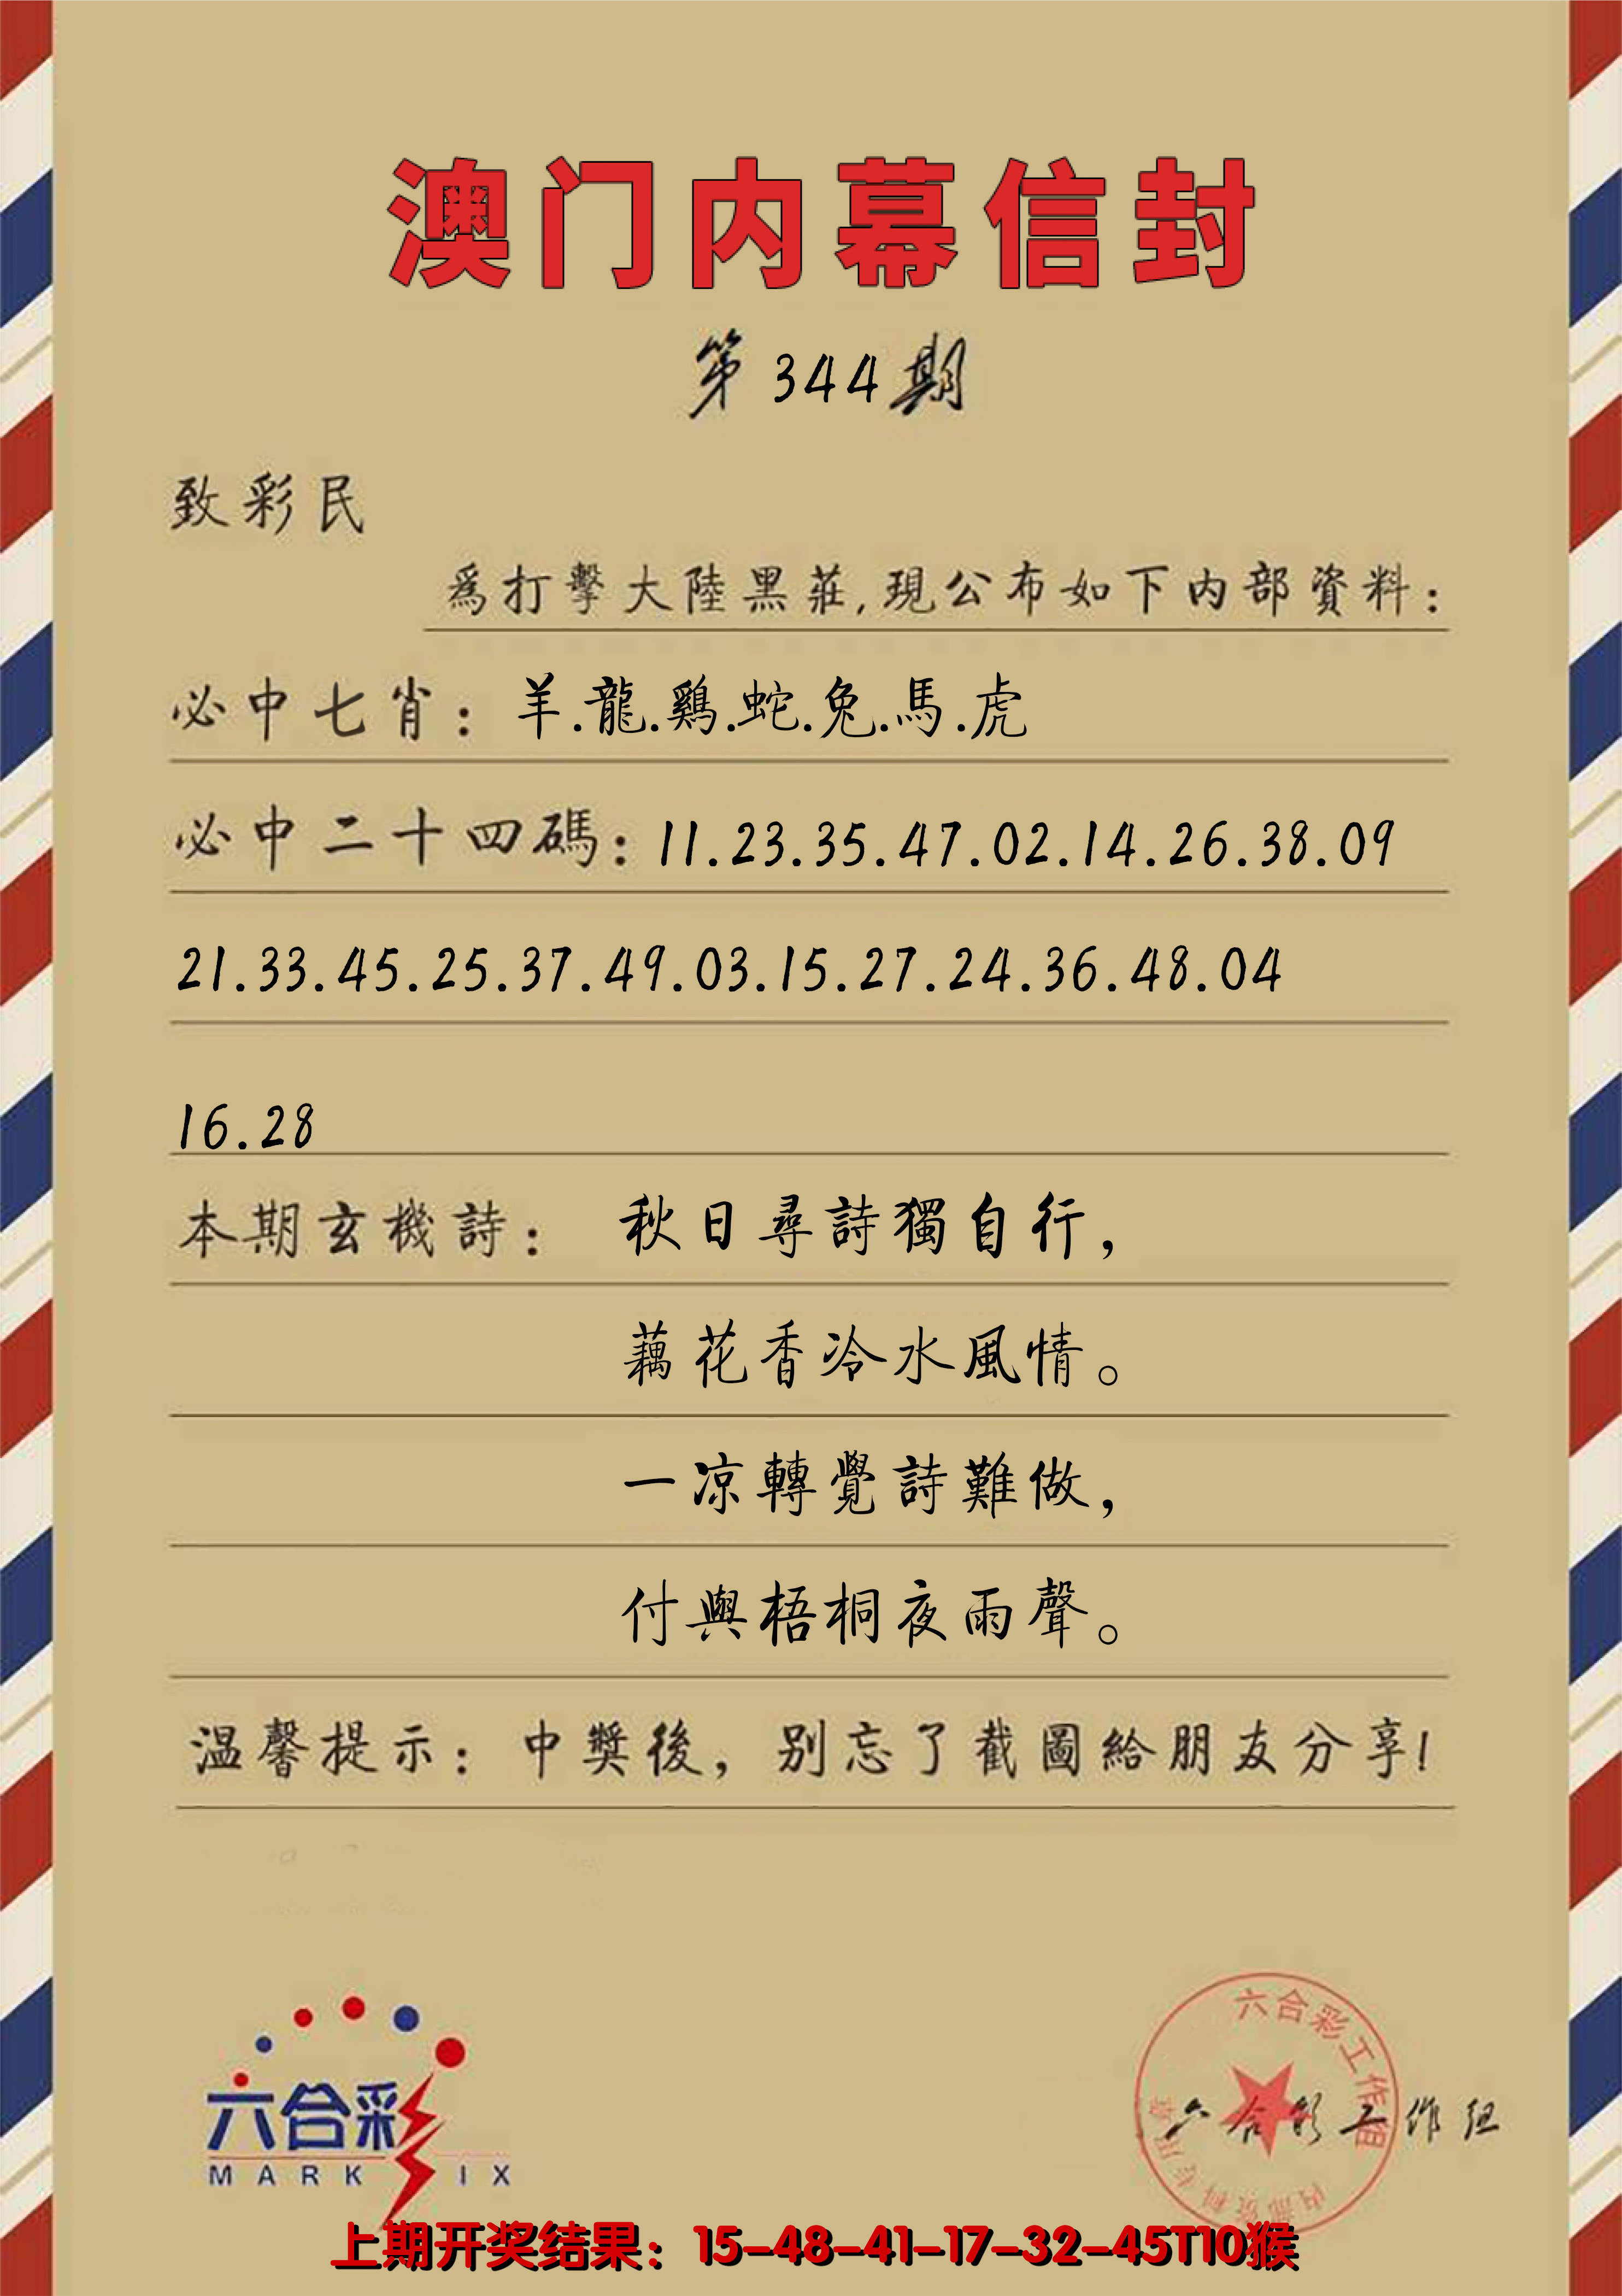 澳门内幕信封
第344期
致彩民
為打擊大陸黑莊,現公布如下内部資料:
必中七肖: 羊.龍.鷄.蛇.兔.馬.虎
必中二十四碼: 11.23.35.47.02.14.26.38.09
21.33.45.25.37.49.03.15.27.24.36.48.04
16.28
本期玄機詩: 秋日尋詩獨自行，
藕花香冷水風情。
一凉轉覺詩難做，
付與梧桐夜雨聲。
温馨提示: 中獎後，别忘了截圖給朋友分享!
六合彩
MARK IX
六合彩工作组
内部资料专用章
六合彩工作组
上期开奖结果：15-48-41-17-32-45T10猴